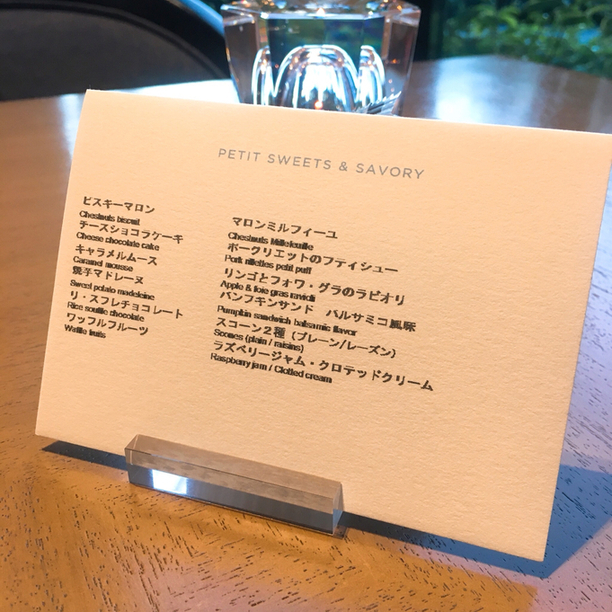 PETIT SWEETS & SAVORY
ビスキーマロン
Chestnuts biscuit
チーズショコラケーキ
Cheese chocolate cake
キャラメルムース
Caramel mousse
親子マドレーヌ
Sweet potato madeleine
リ・スフレチョコレート
Rice souffle chocolate
ワッフルフルーツ
Waffle fruits
マロンミルフィーユ
Chestnuts Millefeuille
ポークリエットのプティシュー
Pork rillettes petit puff
リンゴとフォワ・グラのラビオリ
Apple & foie gras ravioli
パンプキンサンド　バルサミコ風味
Pumpkin sandwich balsamic flavor
スコーン２種（プレーン/レーズン）
Scones (plain / raisins)
ラズベリージャム・クロテッドクリーム
Raspberry jam / Clotted cream